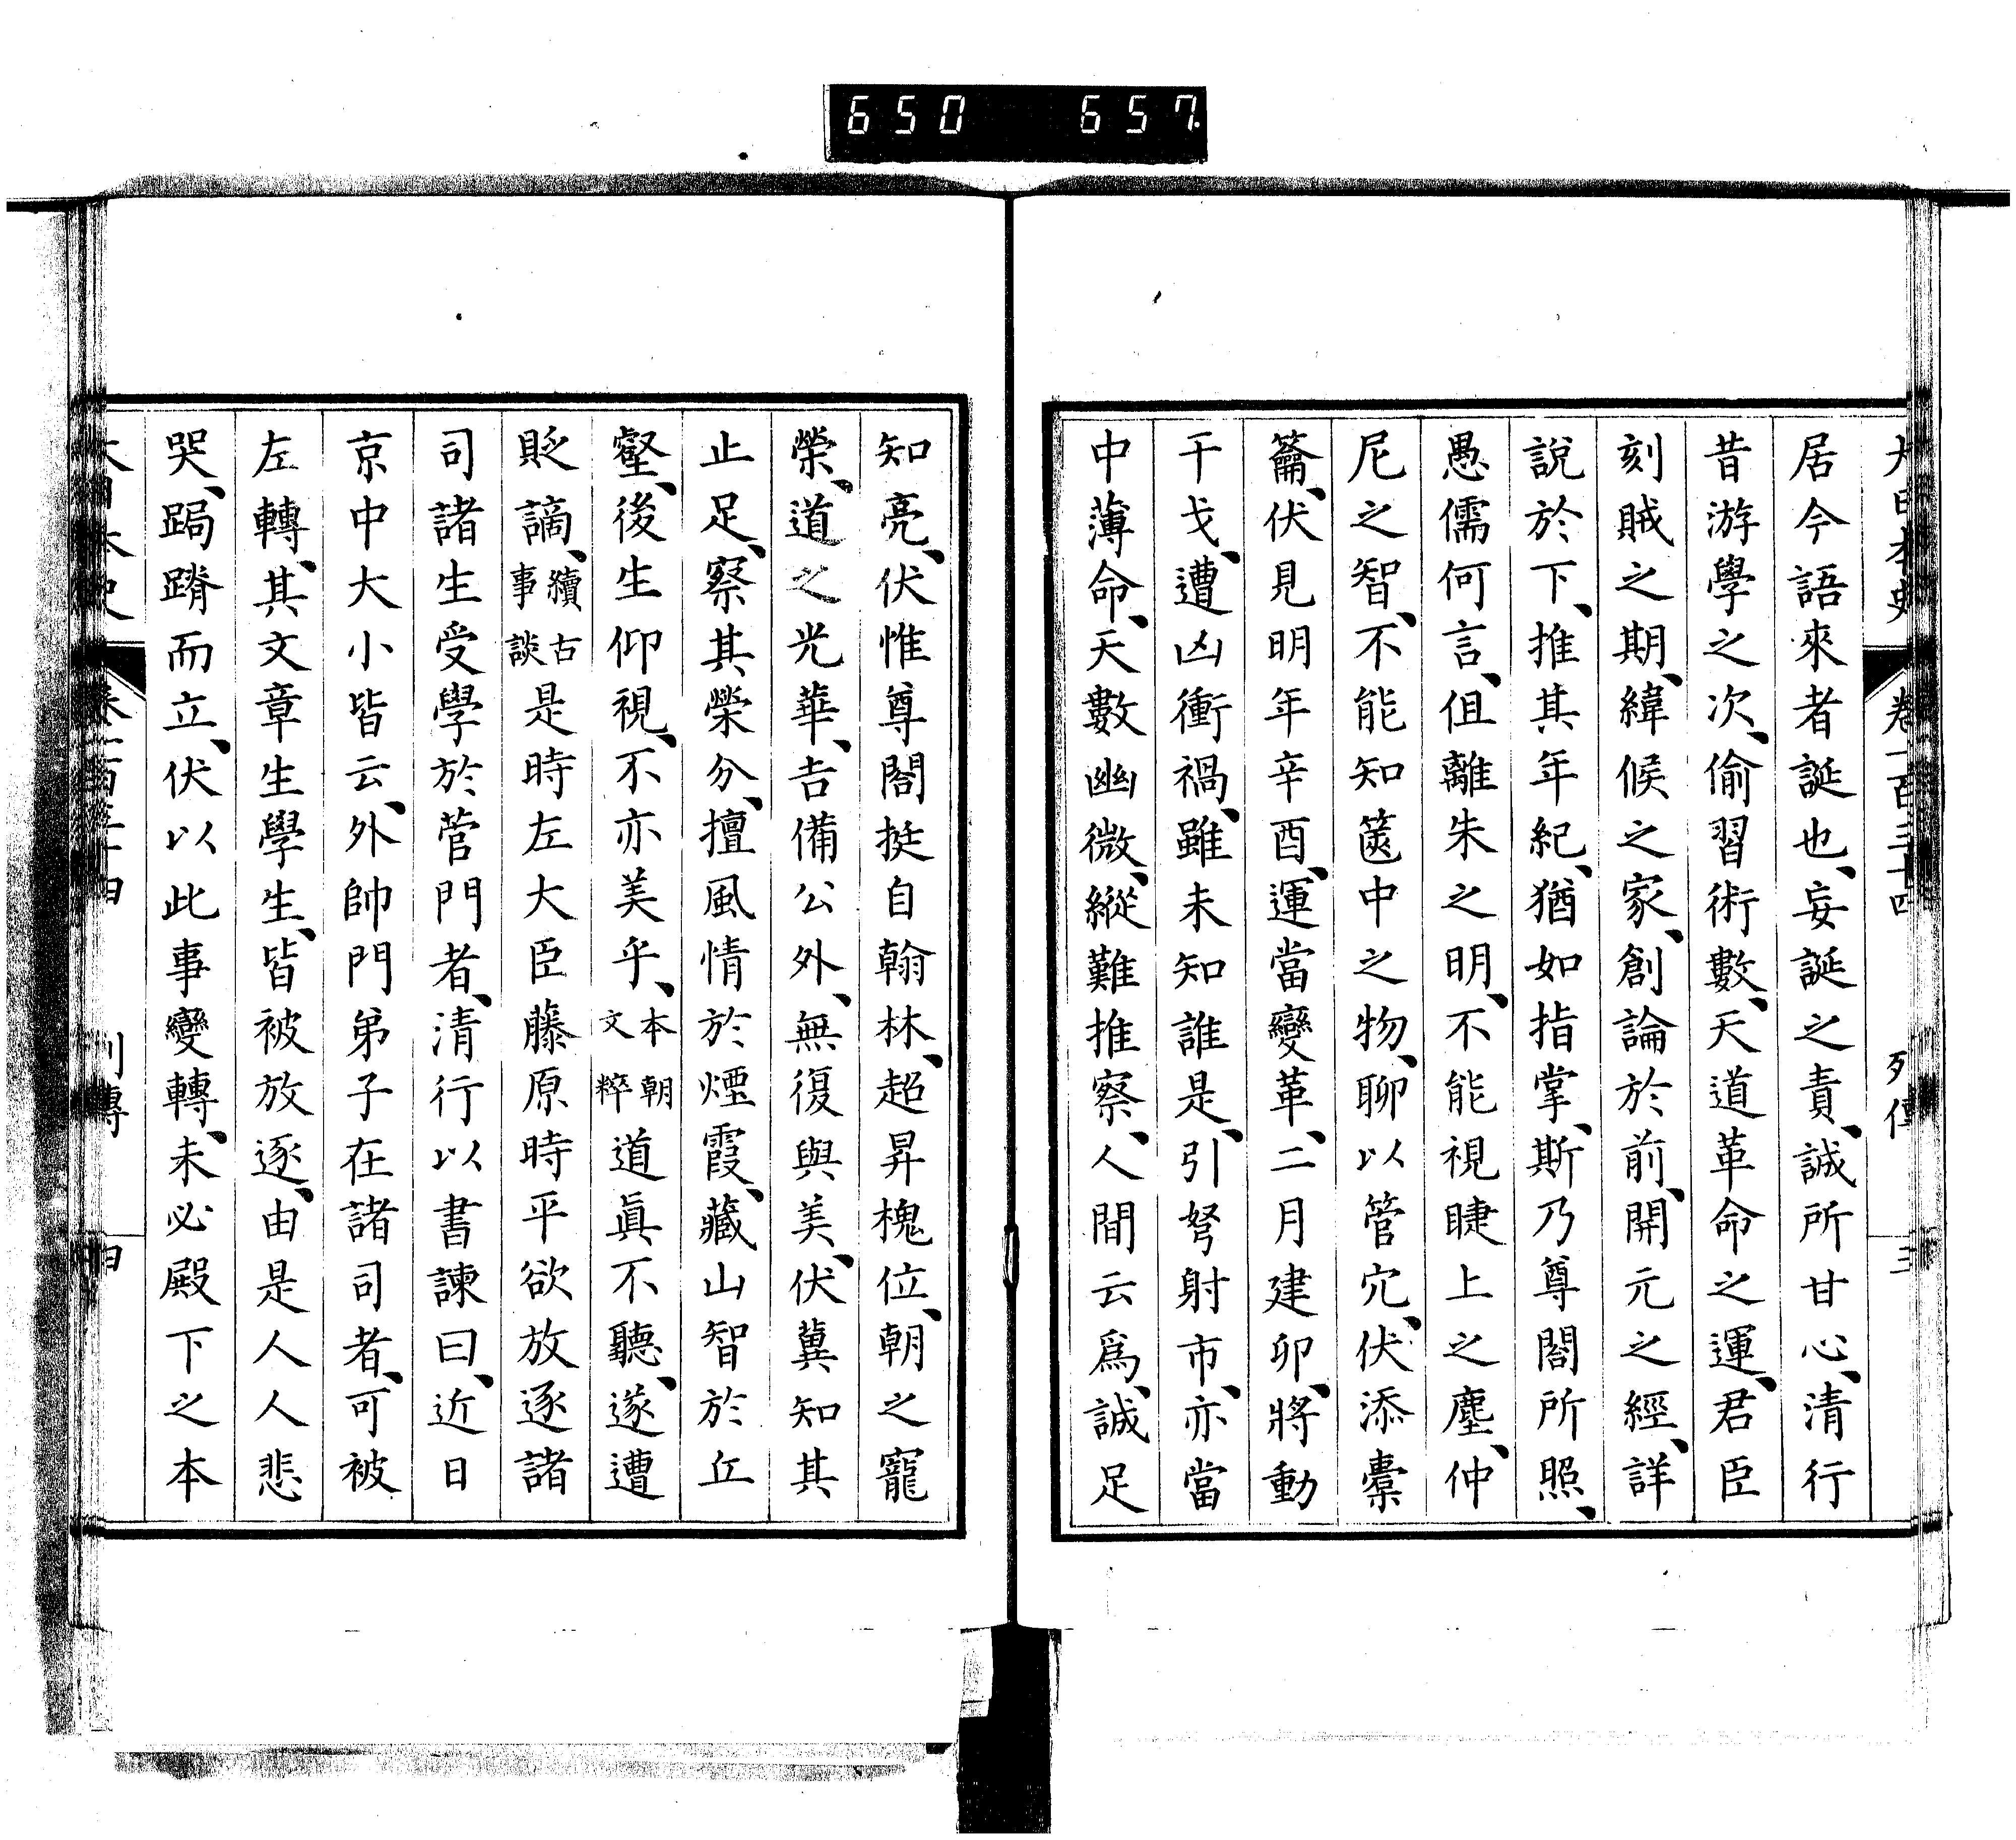 650 657
大日本史 卷一百三十四 列傳 三
居今語來者誕也、妄誕之責、誠所甘心、清行
昔游學之次、偷習術數、天道革命之運、君臣
刻賊之期、緯候之家、創論於前、開元之經、詳
說於下、推其年紀、猶如指掌、斯乃尊閤所照、
愚儒何言、但離朱之明、不能視睫上之塵、仲
尼之智、不能知篋中之物、聊以管穴、伏添橐
籥、伏見明年辛酉、運當變革、二月建卯、將動
干戈、遭凶衝禍、雖未知誰是、引弩射市、亦當
中薄命、天數幽微、縱難推察、人間云爲、誠足
知亮、伏惟尊閤挺自翰林、超昇槐位、朝之寵
榮、道之光華、吉備公外、無復與美、伏冀知其
止足、察其榮分、擅風情於煙霞、藏山智於丘
壑、後生仰視、不亦美乎、本朝文粹道眞不聽、遂遭
貶謫、續古事談是時左大臣藤原時平欲放逐諸
司諸生受學於菅門者、清行以書諫曰、近日
京中大小皆云、外帥門弟子在諸司者、可被
左轉、其文章生學生、皆被放逐、由是人人悲
哭、跼蹐而立、伏以此事變轉、未必殿下之本
大日本史 卷一百三十四 列傳 四